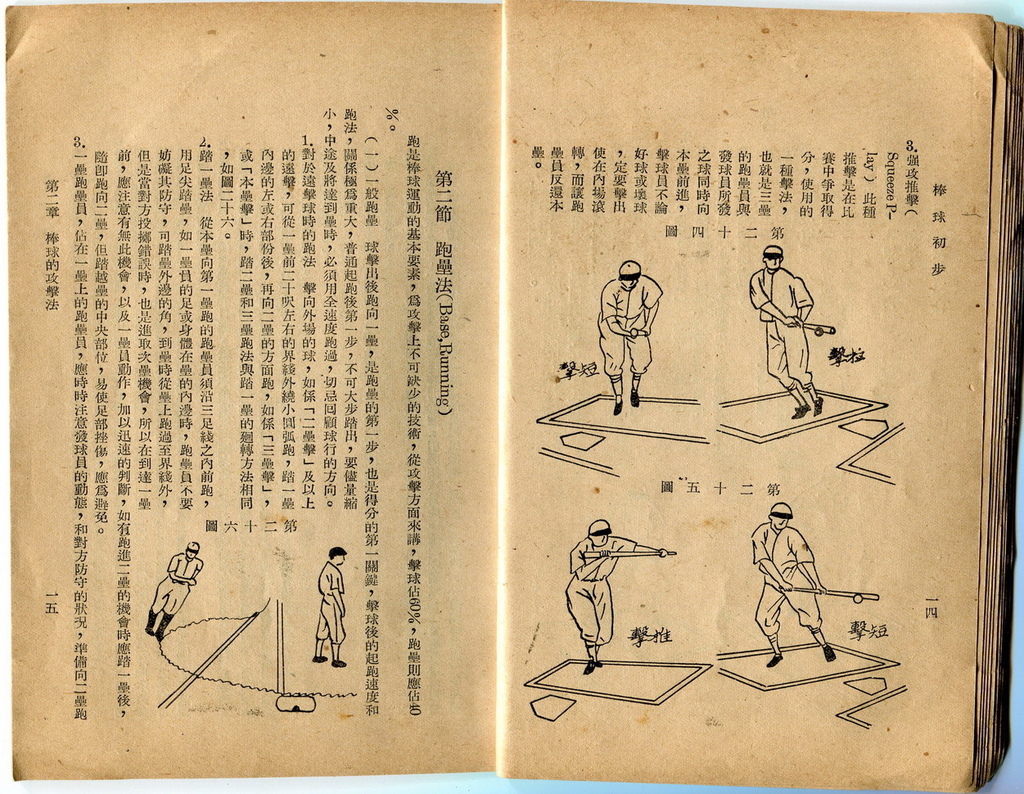 棒球初步
3.强攻推擊(
Squeeze P-
lay)此種
推擊是在比
賽中爭取得
分,使用的
一種擊法,
也就是三壘
的跑壘員與
發球員所發
之球同時向
本壘前進,
擊球員不論
好球或壞球
,定要擊出
使在內場滾
轉,而讓跑
壘員反還本
壘。
第二十四圖
擊拉
擊短
第二十五圖
擊短
擊推
一四
第二節 跑壘法(Base,Running)
跑是棒球運動的基本要素,爲攻擊上不可缺少的技術,從攻擊方面來講,擊球佔60%,跑壘則應佔40
%。
(一)一般跑壘 球擊出後跑向一壘,是跑壘的第一步,也是得分的第一關鍵,擊球後的起跑速度和
跑法,關係極爲重大,普通起跑後第一步,不可大步踏出,要儘量縮
小,中途及將達到壘時,必須用全速度跑過,切忌回顧球行的方向。
1.對於遠擊球時的跑法 擊向外場的球,如係「二壘擊」及以上
的遠擊,可從一壘前二十呎左右的界綫外繞小圓弧跑,踏一壘
內邊的左或右部份後,再向二壘的方面跑,如係「三壘擊」,
或「本壘擊」時,踏二壘和三壘跑法與踏一壘的廻轉方法相同
,如圖二十六。
2.踏一壘法 從本壘向第一壘跑的跑壘員須沿三足綫之內前跑,
用足尖踏壘,如一壘員的足或身體在壘的內邊時,跑壘員不要
妨礙其防守,可踏壘外邊的角,到壘時從壘上跑過至界綫外,
但是當對方投擲錯誤時,也是進取次壘機會,所以在到達一壘
前,應注意有無此機會,以及一壘員動作,加以迅速的判斷,如有跑進二壘的機會時應踏一壘後,
隨卽跑向二壘,但踏越壘的中央部位,易使足部挫傷,應爲避免。
3.一壘跑壘員,佔在一壘上的跑壘員,應時時注意發球員的動態,和對方防守的狀況,準備向二壘跑
第二十六圖
第二章 棒球的攻擊法
一五